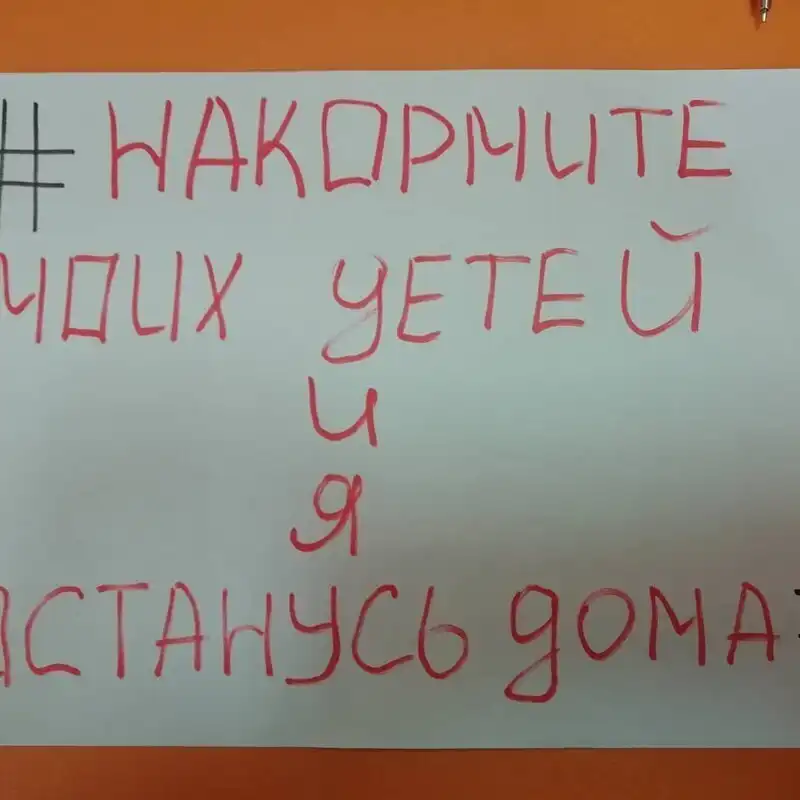 #НАКОРМИТЕ
МОИХ ДЕТЕЙ
И
Я
ОСТАНУСЬ ДОМА